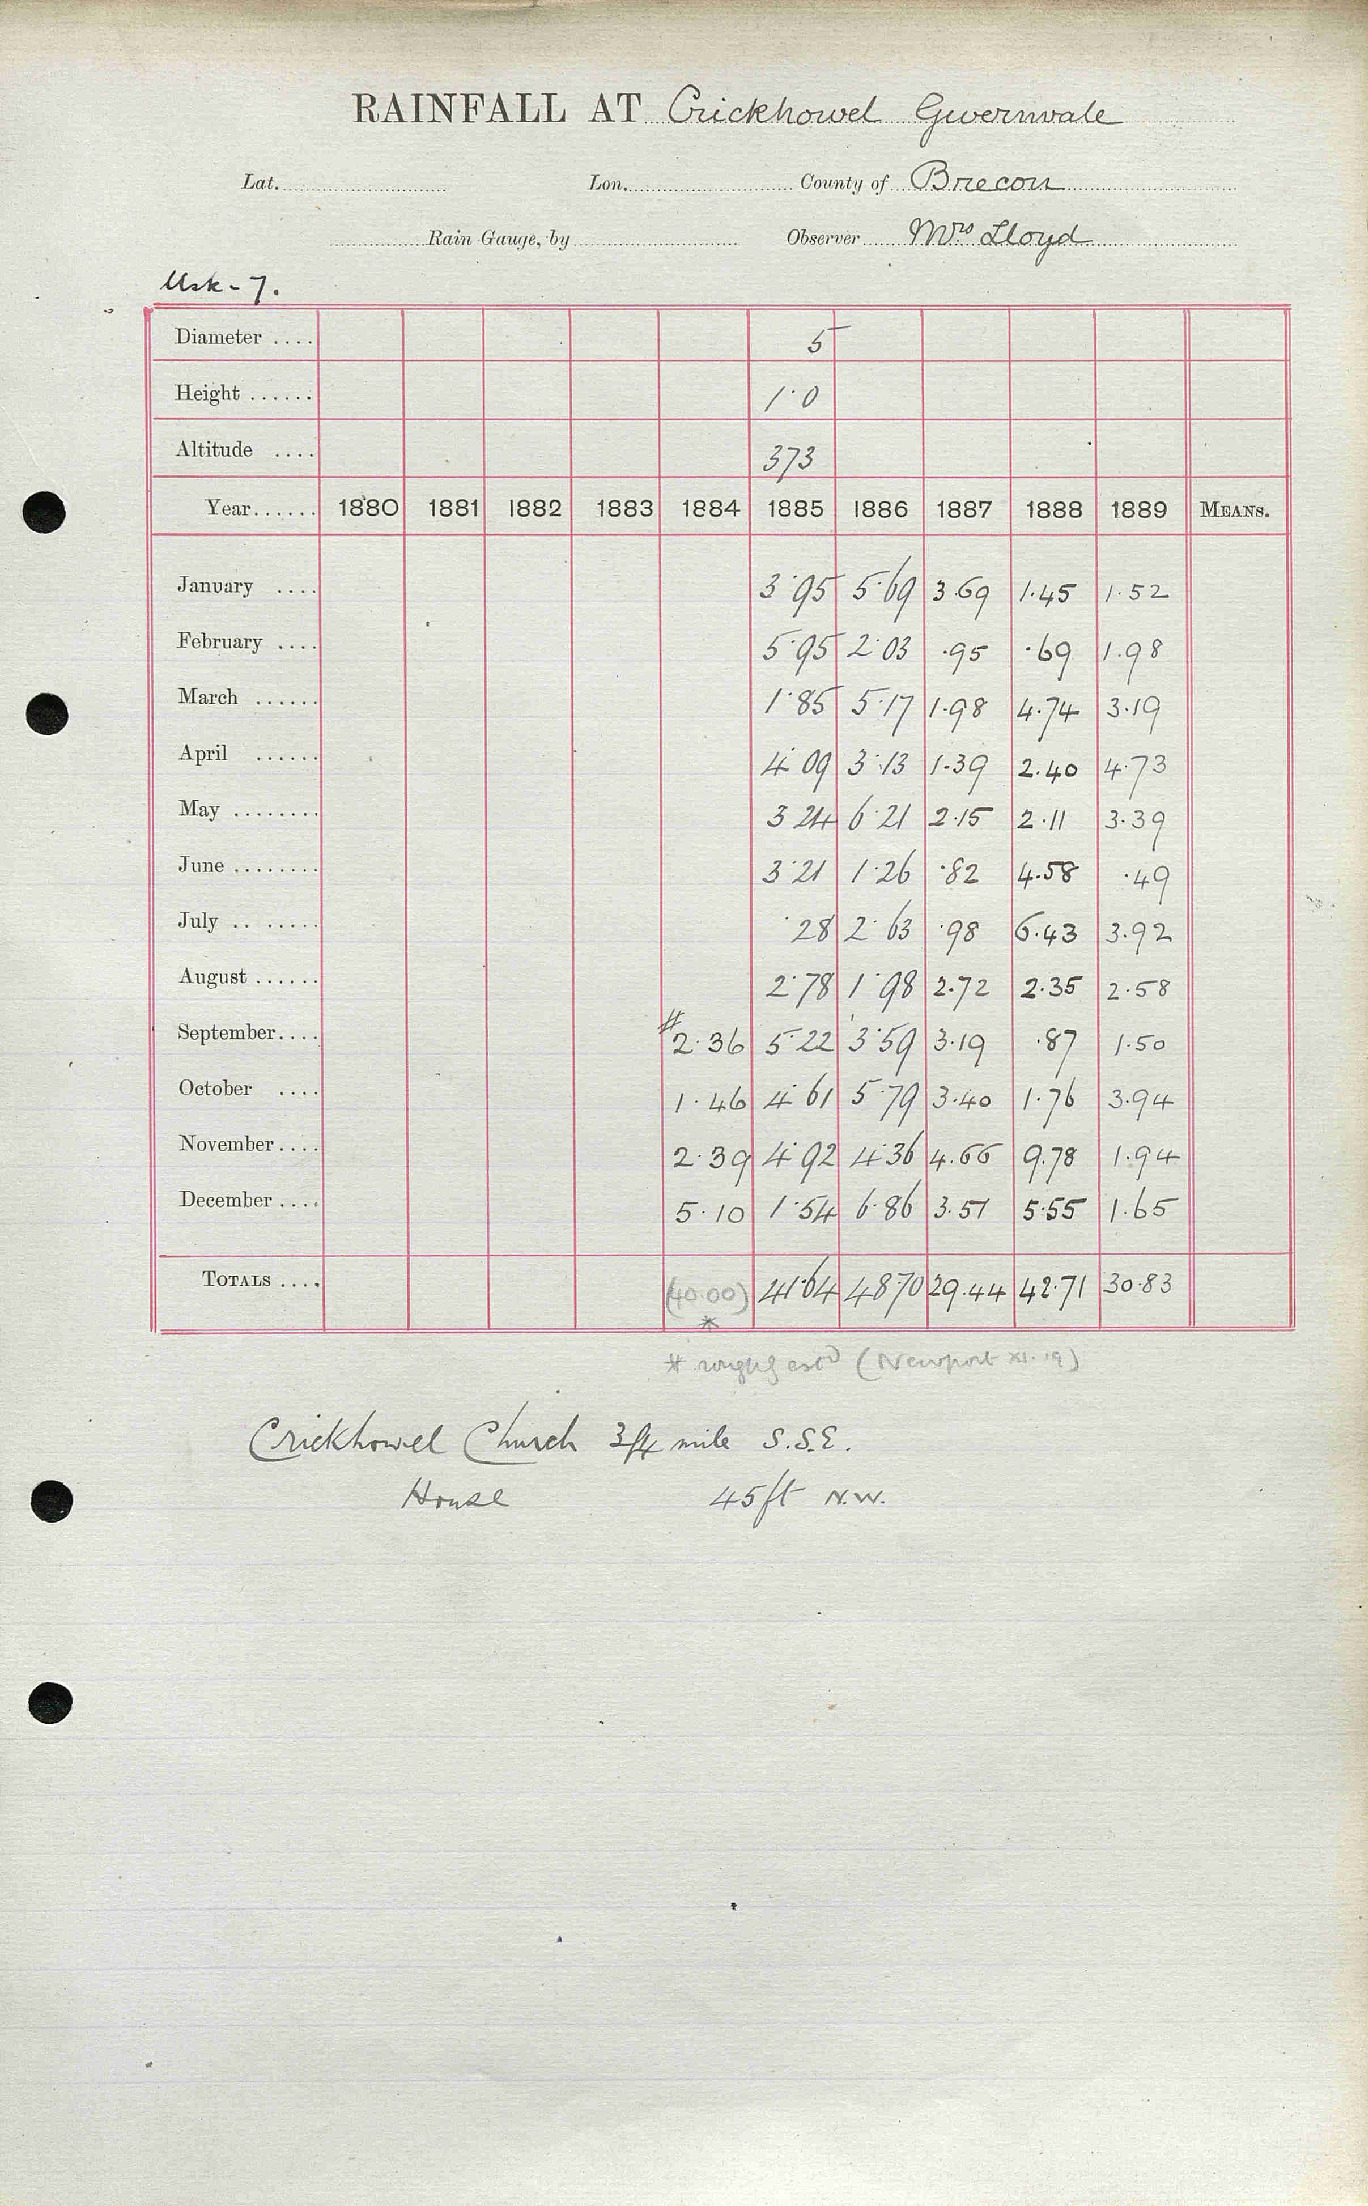 RAINFALL AT Crickhowel Gwernvale
Lat. Lon. County of Brecon
Rain Gauge, by Observer Mrs Lloyd
Usk - 7.
Diameter .... 5
Height ...... 1·0
Altitude .... 373
Year...... 1880 1881 1882 1883 1884 1885 1886 1887 1888 1889 MEANS.
January .... 3·95 5·69 3.69 1.45 1.52
February .... 5·95 2·03 .95 .69 1.98
March ...... 1·85 5·17 1.98 4.74 3.19
April ...... 4·09 3·13 1.39 2.40 4.73
May ........ 3·24 6·21 2.15 2.11 3.39
June ........ 3·21 1·26 .82 4.58 .49
July .. ...... ·28 2·63 .98 6.43 3.92
August ...... 2·78 1·98 2.72 2.35 2.58
September.... #2·36 5·22 3·59 3.19 .87 1.50
October .... 1·46 4·61 5·79 3.40 1.76 3.94
November.... 2·39 4·92 4·36 4.66 9.78 1.94
December.... 5·10 1·54 6·86 3.51 5.55 1.65
TOTALS .... (40.00) 41·64 48·70 29.44 42.71 30.83
*
* roughly estd (Newport XI. 19)
Crickhowel Church 3/4 mile S.S.E.
House 45ft N.W.